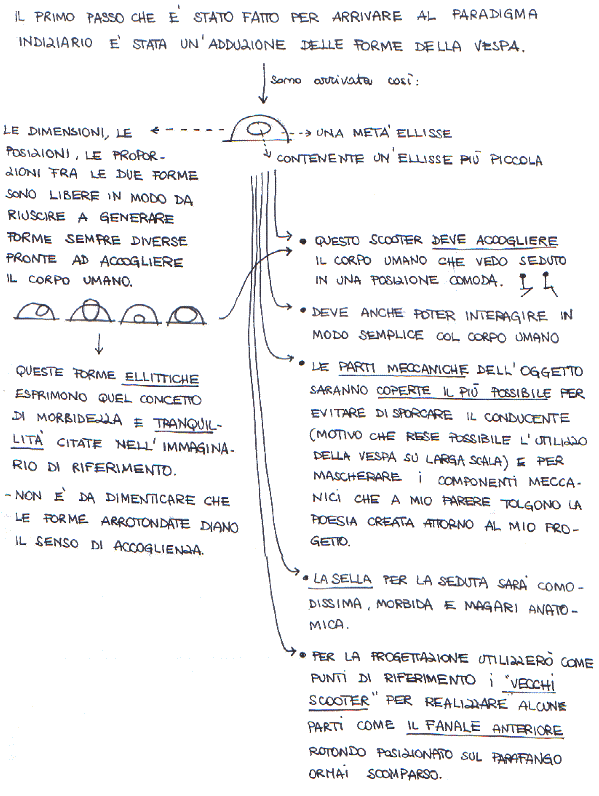 IL PRIMO PASSO CHE E' STATO FATTO PER ARRIVARE AL PARADIGMA
INDIZIARIO E' STATA UN'ADDUZIONE DELLE FORME DELLA VESPA.
sono arrivata così:
LE DIMENSIONI, LE
POSIZIONI, LE PROPOR-
ZIONI FRA LE DUE FORME
SONO LIBERE IN MODO DA
RIUSCIRE A GENERARE
FORME SEMPRE DIVERSE
PRONTE AD ACCOGLIERE
IL CORPO UMANO.
UNA META' ELLISSE
CONTENENTE UN'ELLISSE PIÙ PICCOLA
QUESTE FORME ELLITTICHE
ESPRIMONO QUEL CONCETTO
DI MORBIDEZZA E TRANQUIL-
LITÀ CITATE NELL'IMMAGINA-
RIO DI RIFERIMENTO.
- NON È DA DIMENTICARE CHE
LE FORME ARROTONDATE DIANO
IL SENSO DI ACCOGLIENZA.
• QUESTO SCOOTER DEVE ACCOGLIERE
IL CORPO UMANO CHE VEDO SEDUTO
IN UNA POSIZIONE COMODA.
• DEVE ANCHE POTER INTERAGIRE IN
MODO SEMPLICE COL CORPO UMANO
• LE PARTI MECCANICHE DELL'OGGETTO
SARANNO COPERTE IL PIÙ POSSIBILE PER
EVITARE DI SPORCARE IL CONDUCENTE
(MOTIVO CHE RESE POSSIBILE L'UTILIZZO
DELLA VESPA SU LARGA SCALA) E PER
MASCHERARE i COMPONENTI MECCA-
NICI CHE A MIO PARERE TOLGONO LA
POESIA CREATA ATTORNO AL MIO PRO-
GETTO.
• LA SELLA PER LA SEDUTA SARÀ COMO-
DISSIMA, MORBIDA E MAGARI ANATO-
MICA.
• PER LA PROGETTAZIONE UTILIZZERÒ COME
PUNTI DI RIFERIMENTO i "VECCHI
SCOOTER" PER REALIZZARE ALCUNE
PARTI COME IL FANALE ANTERIORE
ROTONDO POSIZIONATO SUL PARAFANGO
ORMAI SCOMPARSO.